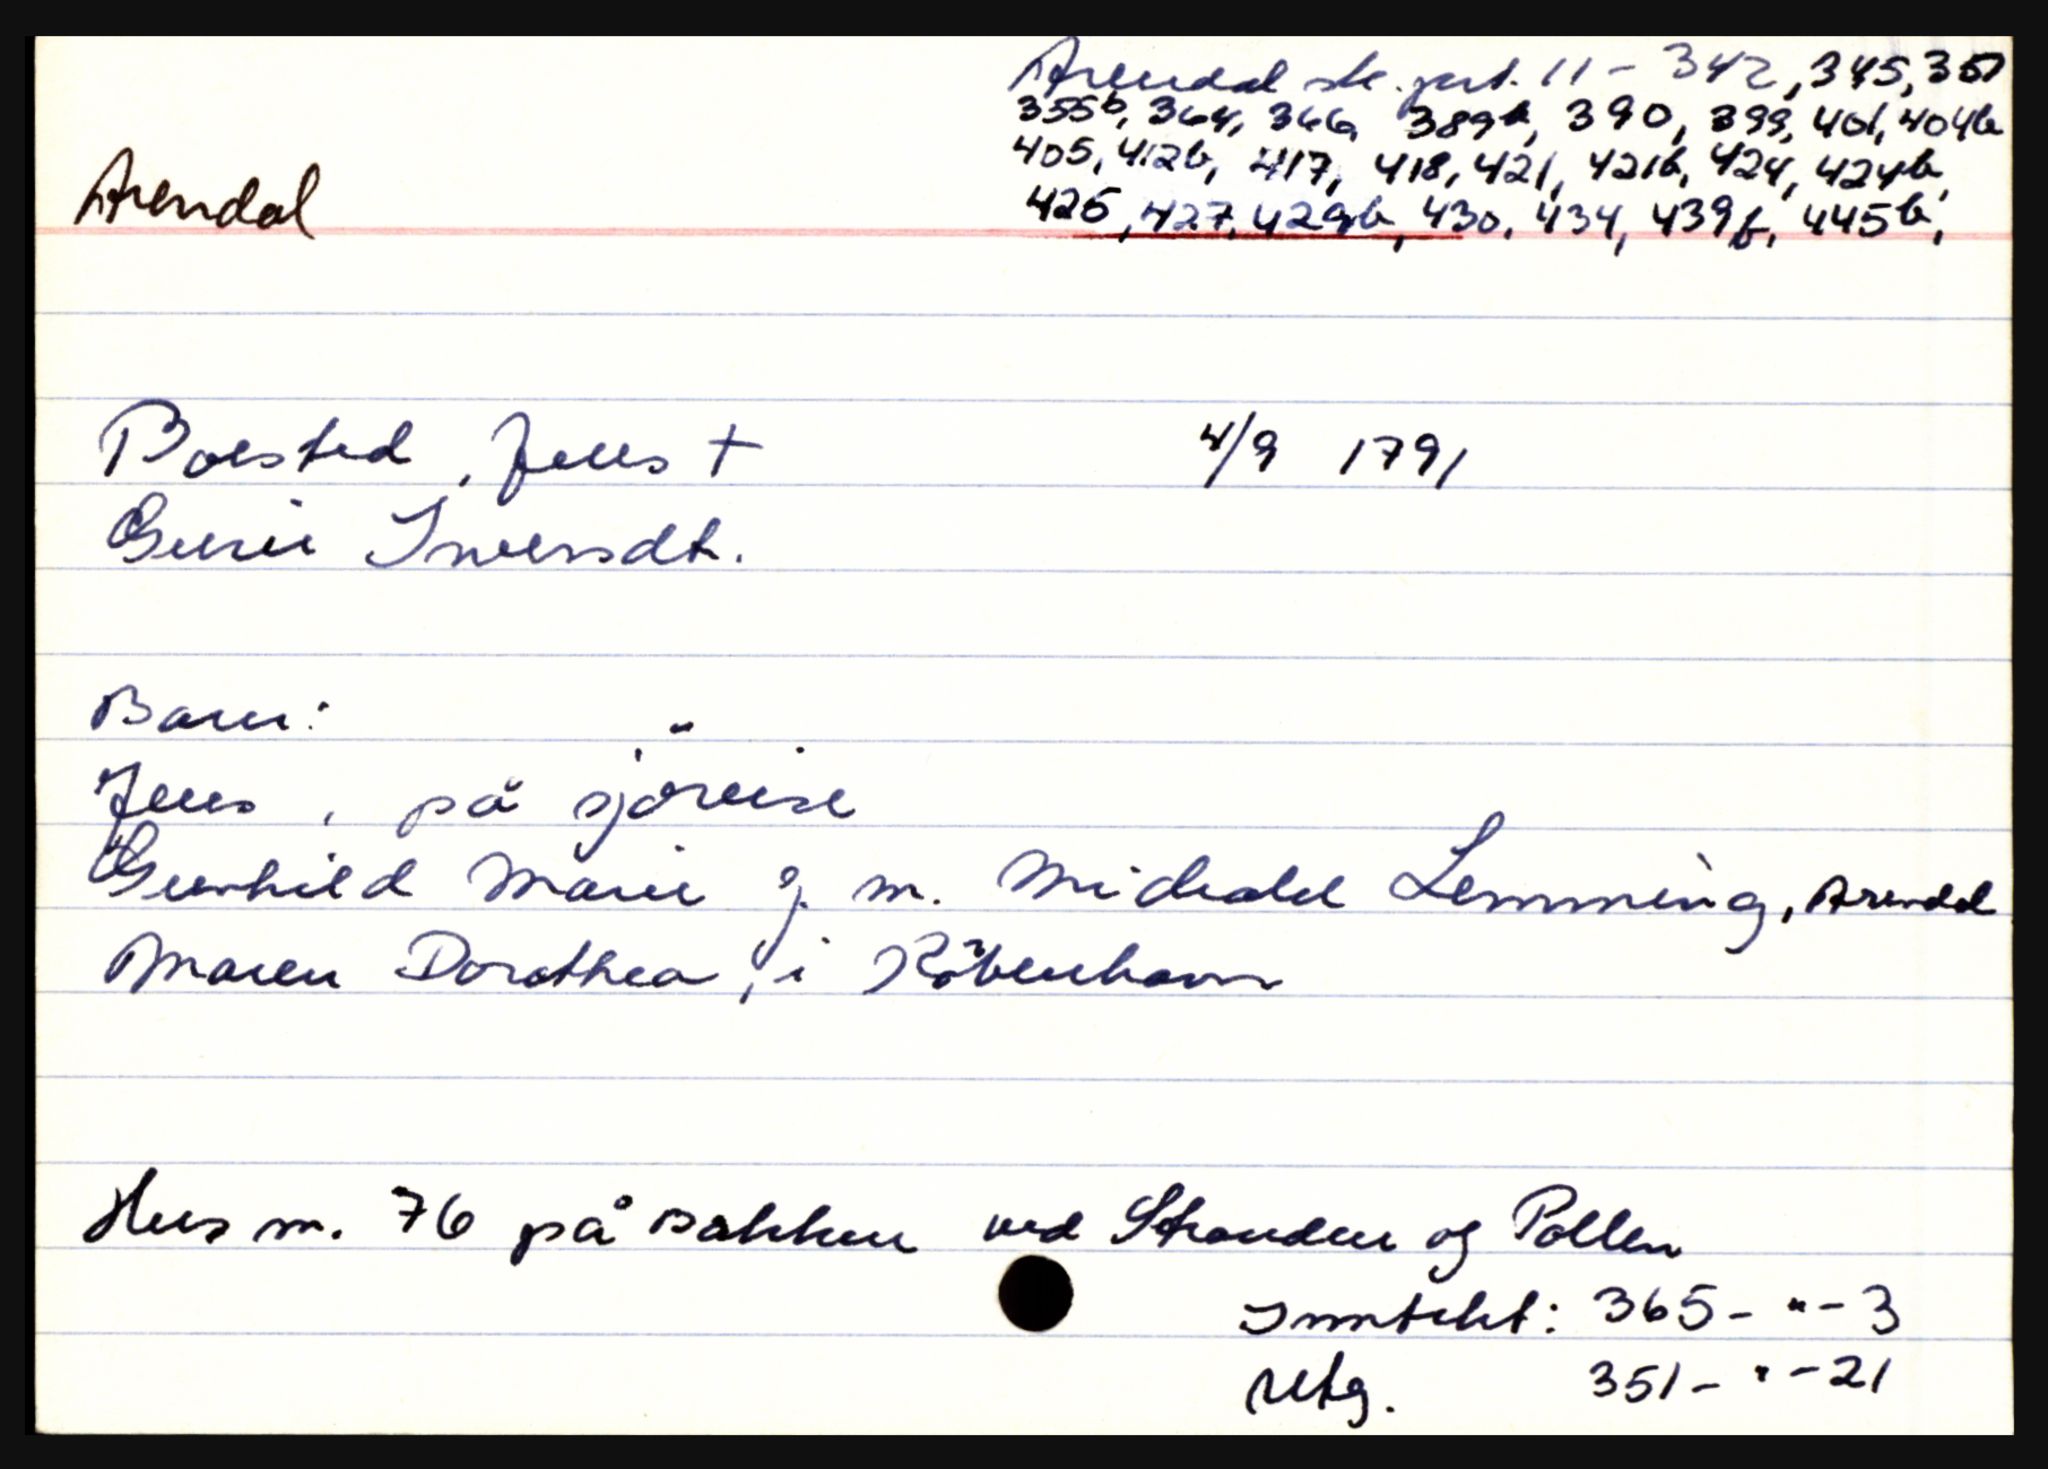 Arendal sk. prt. 11 - 342, 345, 351
355b, 364, 366, 389b, 390, 399, 401, 404b
405, 412b, 417, 418, 421, 421b, 424, 424b,
425, 427, 429b, 430, 434, 439b, 445b,
Arendal
Boested, Jens + 4/9 1791
Gurie Iversdt.
Barn:
Jens, på sjöreise
Gunhild Marie g. m. Michael Lemming, Arendal
Maren Dorothea, i Köbenhavn
Hus nr. 76 på Bakken ved Stranden og Pollen
Inntekt: 365 - " - 3
Utg. 351 - " - 21